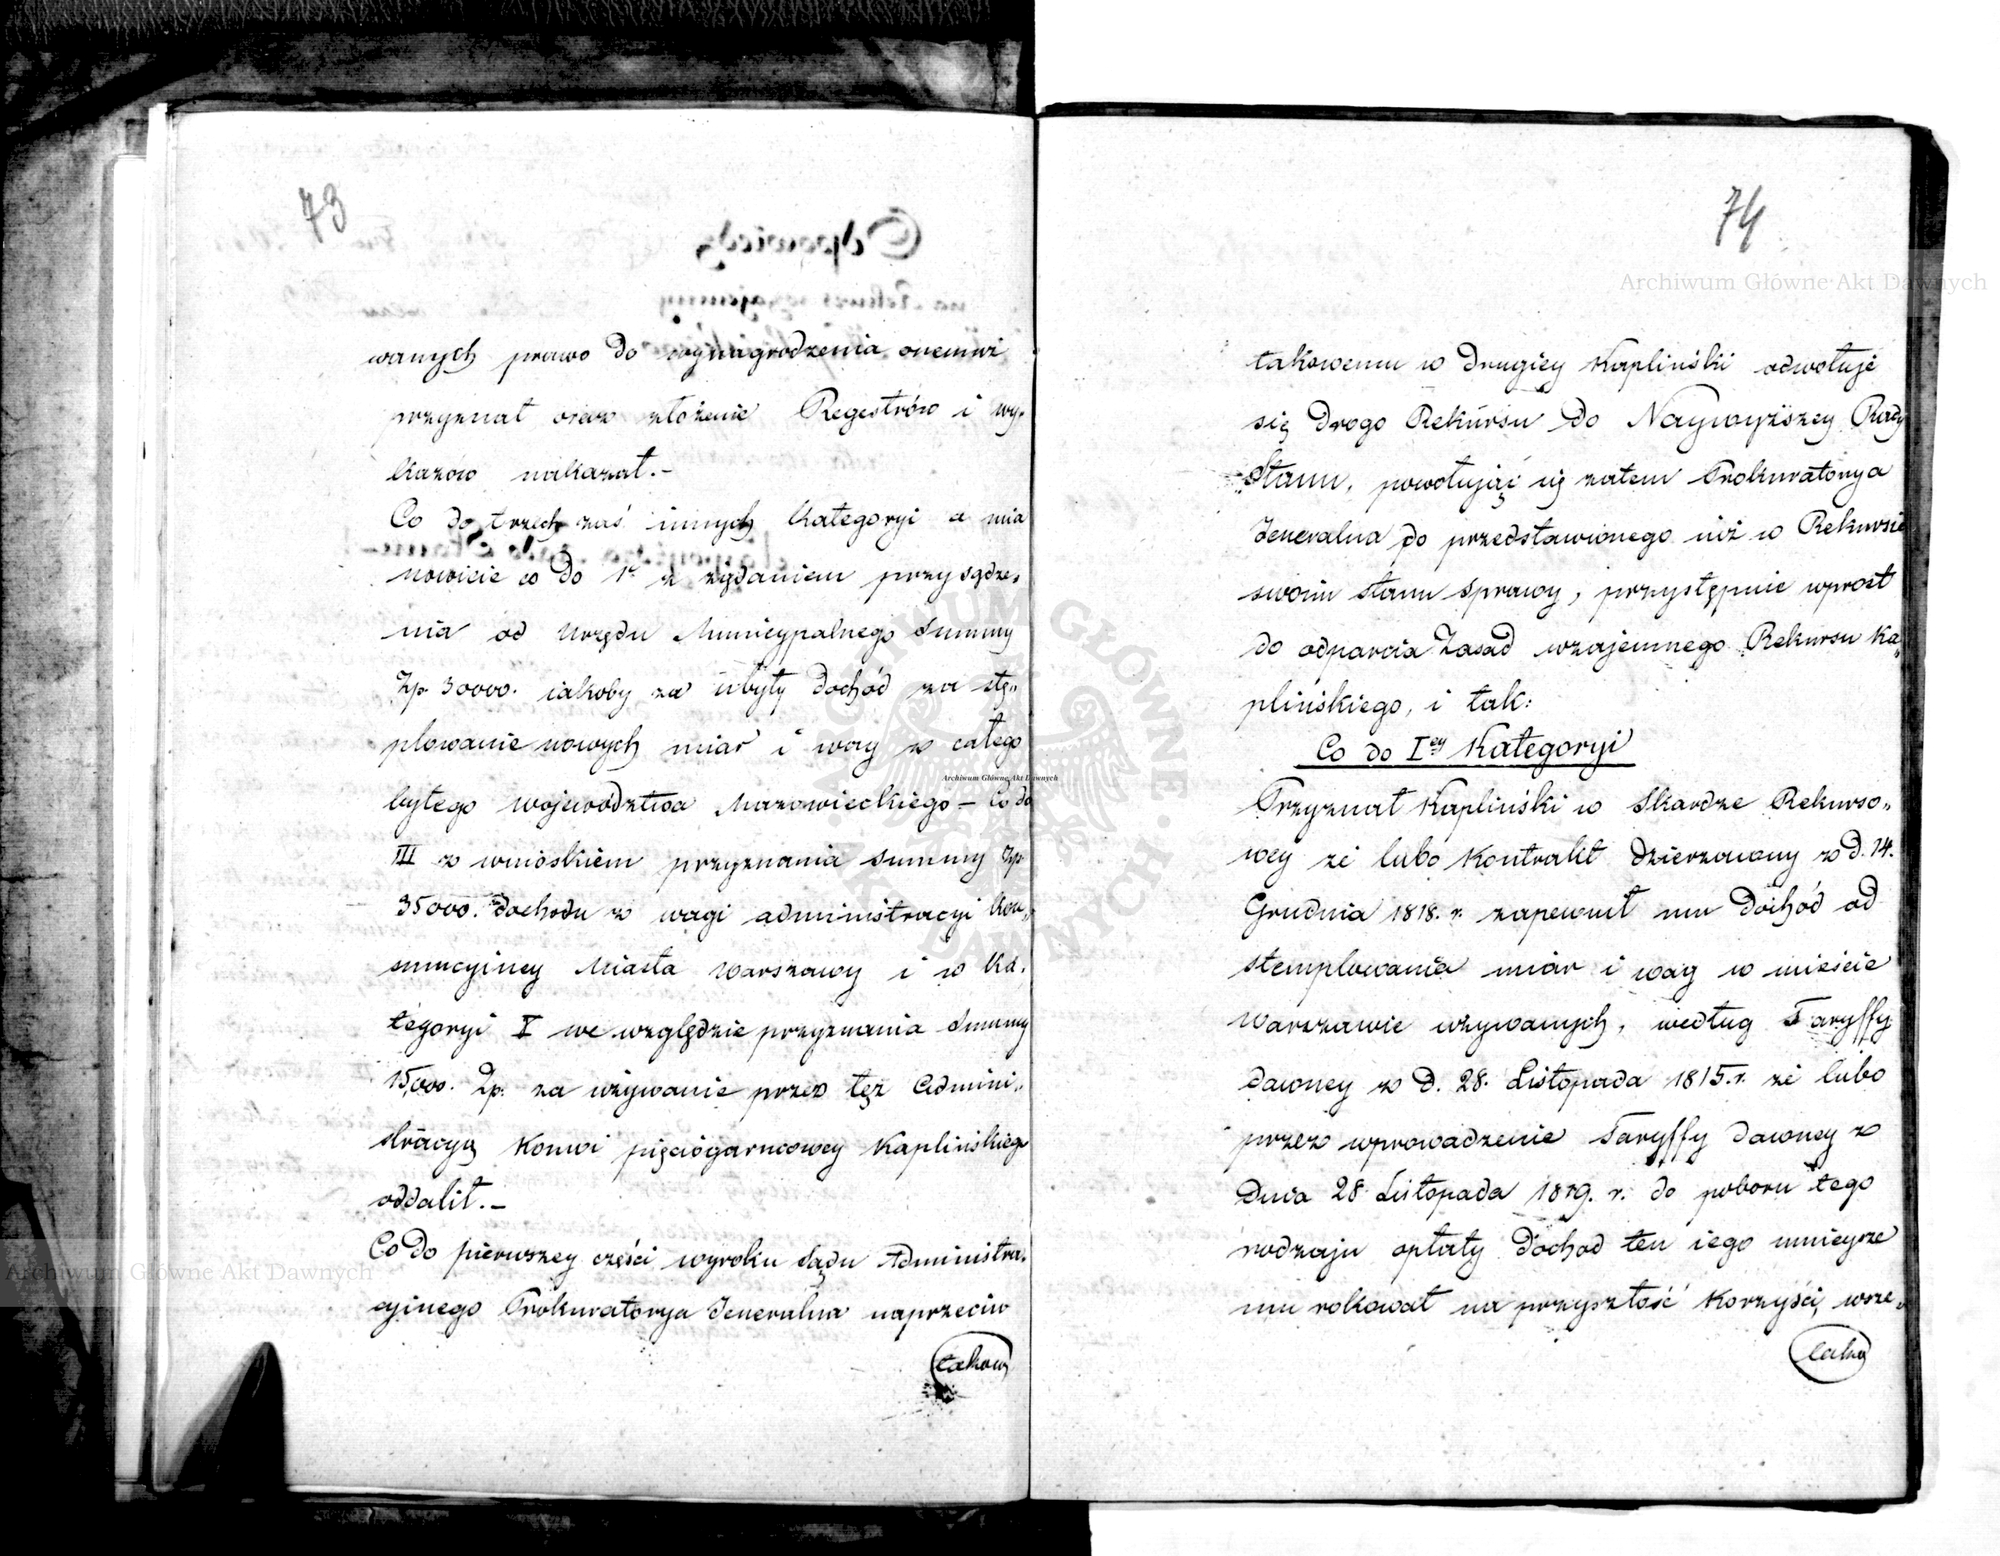 73
wanych prawo do wynagrodzenia onemuż
przyznał oraz złożenie Regestrów i wy„
kazów nakazał.–
Co do trzech zaś innych Kategoryi a mia
nowicie co do 1. z żądaniem przysądze„
nia od Urzędu Municypalnego Summy
Zp. 30000. iakoby za ubyły dochód za stę„
plowanie nowych miar i wag w całego
byłego województwa Mazowieckiego – Co do
III z wnioskiem przyznania summy Zp.
35000. dochodu z wagi administracyi Kon„
sumcyiney Miasta Warszawy i w Ka„
tegoryi V we względzie przyznania Summy
15,000. Zp. za używanie przez też Admini„
stracyą Konwi pięciogarncowey Kaplińskiego
oddalił.–
Co do pierwszey części wyroku Sądu Administra„
cyinego Prokuratorya Jeneralna naprzeciw
takow
74
takowemu w drugiey Kapliński odwołuje
się drogo Rekursu do Naywyższey Rady
Stanu, powołując się zatem Prokuratorya
Jeneralna do przedstawionego iuż w Rekursie
swoim stanu sprawy, przystępuie wprost
do odparcia Zasad wzajemnego Rekursu Ka„
plińskiego, i tak:
Co do Iey Kategoryi
Przyznał Kapliński w Skardze Rekurso„
wey że lubo Kontrakt dzierzawny z d. 14.
Grudnia 1818. r. zapewnił mu dochód od
stemplowania miar i wag w mieście
Warszawie używanych, według Taryffy
dawney z d. 28. Listopada 1815. r. że lubo
przez wprowadzenie Taryffy dawney z
Dnia 28 Listopada 1819. r. do poboru tego
rodzaju opłaty dochod ten iego mnieysze
mu rokował na przyszłość korzyści, wsze„
Archiwum Główne Akt Dawnych
Archiwum Główne Akt Dawnych
Archiwum Główne Akt Dawnych
ARCHIWUM GŁÓWNE AKT DAWNYCH